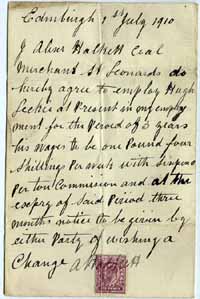 Edinburgh 1st July 1910
I Abner Halkett Coal
Merchant St Leonards do
hereby agree to employ Hugh
Leckie at Present in my employ
ment for the Period of 3 years
his wages to be one Pound four
Shillings Per week with sixpence
Per ton Commission and at the
expery of Said Period three
months notice to be given by
either Party if wishing a
Change A Halkett